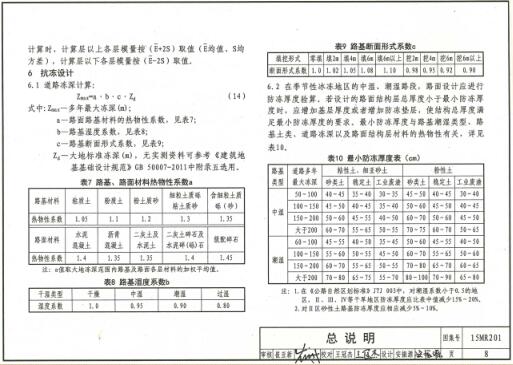 计算时，计算层以上各层模量按（E+2S）取值（E均值、S均
方差），计算层以下各层模量按（E-2S）取值。
6 抗冻设计
6.1 道路冻深计算：
Zmax=a·b·c·Zd （14）
式中：Zmax—多年最大冻深(m)；
a—路面路基材料的热物性系数，见表7；
b—路基湿度系数，见表8；
c—路基断面形式系数，见表9；
Zd—大地标准冻深(m)，无实测资料可参考《建筑地
基基础设计规范》GB 50007-2011中附录五选用。
表7 路基、路面材料热物性系数a
路基材料 粘质土 粉质土 粉土质砂 细粒土质砾、粘土质砂 含细粒土质砾(砂)
热物性系数 1.05 1.1 1.2 1.3 1.35
路面材料 水泥混凝土 沥青混凝土 二灰土及水泥土 二灰碎石及水泥碎(砾)石 级配碎石
热物性系数 1.4 1.35 1.35 1.4 1.45
注：a值取大地冻深范围内路基及路面各层材料的加权平均值。
表8 路基湿度系数b
干湿类型 干燥 中湿 潮湿 过湿
湿度系数 1.0 0.95 0.90 0.80
表9 路基断面形式系数c
填挖形式 零填 填2m 填4m 填6m 填6m以上 挖2m 挖4m 挖6m 挖6m以上
断面形式系数 1.0 1.02 1.05 1.08 1.10 0.98 0.95 0.92 0.90
6.2 在季节性冰冻地区的中湿、潮湿路段，路面设计应进行
防冻厚度验算。若设计的路面结构层总厚度小于最小防冻厚
度时，应增加基层厚度或者增加防冻垫层，使结构总厚度满
足最小防冻厚度的要求。最小防冻厚度与路基潮湿类型、路
基土类、道路冻深以及路面结构层材料的热物性有关，详见
表10。
表10 最小防冻厚度表（cm）
路基类型 道路多年最大冻深 粘性土、细亚砂土 粉性土
砂石类 稳定土类 工业废渣 砂石类 稳定土类 工业废渣
中湿 50～100 40～45 35～40 30～35 45～50 40～45 30～40
100～150 45～50 40～45 35～40 50～60 45～50 40～45
150～200 50～60 45～55 40～50 60～70 50～60 45～50
大于200 60～70 55～65 50～55 70～75 60～70 50～65
潮湿 60～100 45～55 40～50 35～45 50～60 45～55 40～50
100～150 55～60 50～55 45～50 60～70 55～65 50～60
150～200 60～70 55～65 50～55 70～80 65～70 60～65
大于200 70～80 65～75 55～70 80～100 70～90 65～80
注：1.在《公路自然区划标准》JTJ 003中，对潮湿系数小于0.5的地
区，Ⅱ、Ⅲ、Ⅳ等干旱地区防冻厚度应比表中值减少15%～20%。
2.对Ⅱ区砂性土路基防冻厚度应相应减少5%～10%。
总说明 图集号 15MR201
审核 校对 王冠杰 设计 页 8